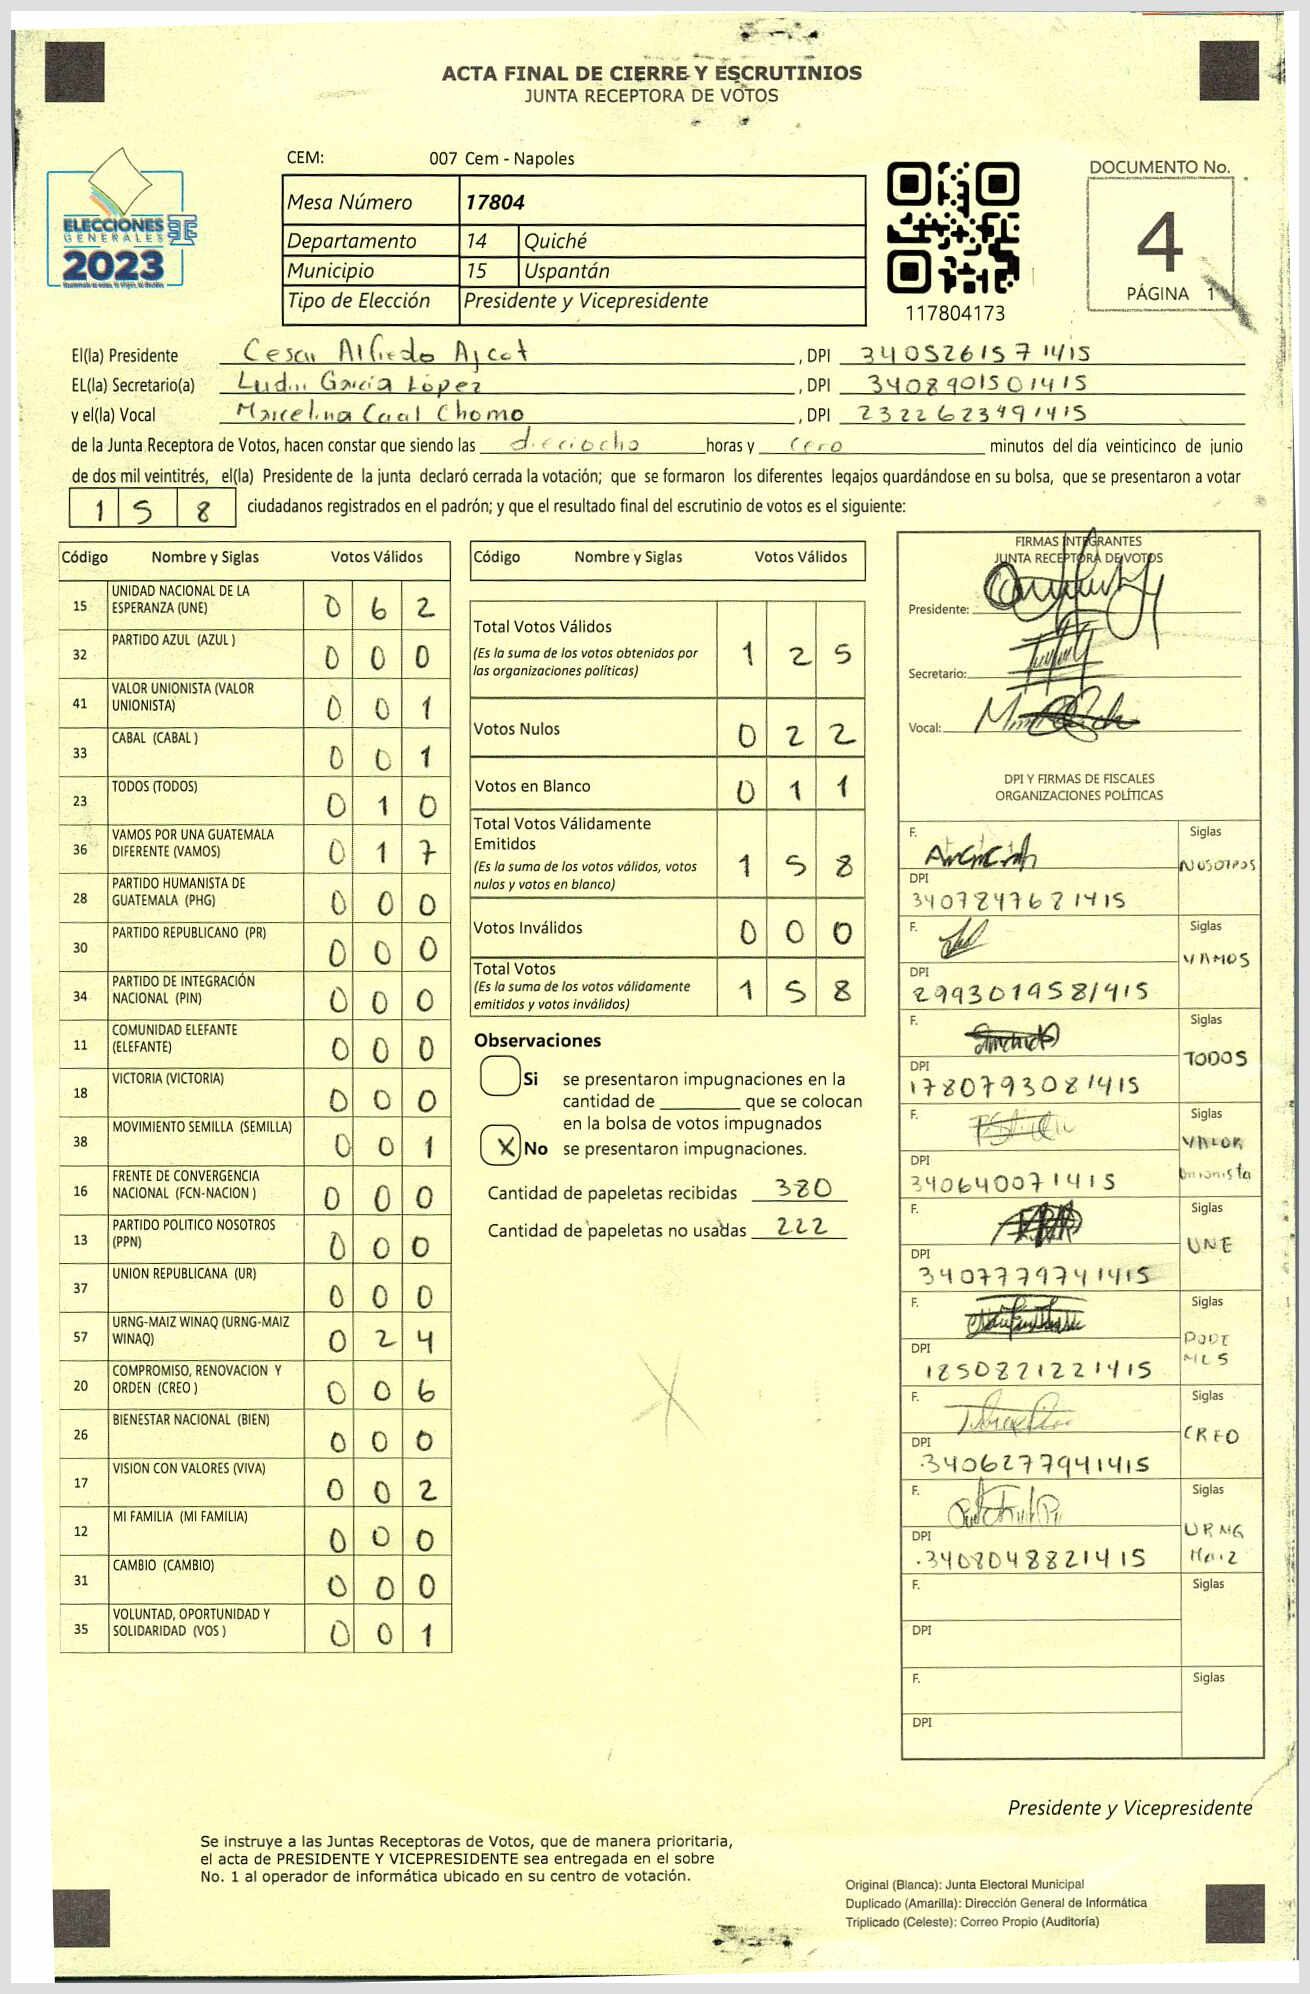 ACTA FINAL DE CIERRE Y ESCRUTINIOS
JUNTA RECEPTORA DE VOTOS
CEM: 007 Cem - Napoles
ELECCIONES
GENERALES
2023
Mesa Número 17804
Departamento 14 Quiché
Municipio 15 Uspantán
Tipo de Elección Presidente y Vicepresidente
117804173
DOCUMENTO No.
4
PÁGINA 1
El(la) Presidente Cesar Alfredo Ajcot, DPI 3405261571415
EL(la) Secretario(a) Ludin García López, DPI 3408901501415
y el(la) Vocal Marcelina Caal Chomo, DPI 2322623491415
de la Junta Receptora de Votos, hacen constar que siendo las dieciocho horas y cero minutos del día veinticinco de junio
de dos mil veintitrés, el(la) Presidente de la junta declaró cerrada la votación; que se formaron los diferentes legajos guardándose en su bolsa, que se presentaron a votar
158 ciudadanos registrados en el padrón; y que el resultado final del escrutinio de votos es el siguiente:
Código Nombre y Siglas Votos Válidos
15 UNIDAD NACIONAL DE LA ESPERANZA (UNE) 062
32 PARTIDO AZUL (AZUL ) 000
41 VALOR UNIONISTA (VALOR UNIONISTA) 001
33 CABAL (CABAL ) 001
23 TODOS (TODOS) 010
36 VAMOS POR UNA GUATEMALA DIFERENTE (VAMOS) 017
28 PARTIDO HUMANISTA DE GUATEMALA (PHG) 000
30 PARTIDO REPUBLICANO (PR) 000
34 PARTIDO DE INTEGRACIÓN NACIONAL (PIN) 000
11 COMUNIDAD ELEFANTE (ELEFANTE) 000
18 VICTORIA (VICTORIA) 000
38 MOVIMIENTO SEMILLA (SEMILLA) 001
16 FRENTE DE CONVERGENCIA NACIONAL (FCN-NACION ) 000
13 PARTIDO POLITICO NOSOTROS (PPN) 000
37 UNION REPUBLICANA (UR) 000
57 URNG-MAIZ WINAQ (URNG-MAIZ WINAQ) 024
20 COMPROMISO, RENOVACION Y ORDEN (CREO ) 006
26 BIENESTAR NACIONAL (BIEN) 000
17 VISION CON VALORES (VIVA) 002
12 MI FAMILIA (MI FAMILIA) 000
31 CAMBIO (CAMBIO) 000
35 VOLUNTAD, OPORTUNIDAD Y SOLIDARIDAD (VOS ) 001
Código Nombre y Siglas Votos Válidos
Total Votos Válidos 125
(Es la suma de los votos obtenidos por
las organizaciones políticas)
Votos Nulos 022
Votos en Blanco 011
Total Votos Válidamente
Emitidos 158
(Es la suma de los votos válidos, votos
nulos y votos en blanco)
Votos Inválidos 000
Total Votos 158
(Es la suma de los votos válidamente
emitidos y votos inválidos)
Observaciones
Si se presentaron impugnaciones en la
cantidad de ________ que se colocan
en la bolsa de votos impugnados
X No se presentaron impugnaciones.
Cantidad de papeletas recibidas 380
Cantidad de papeletas no usadas 222
FIRMAS INTEGRANTES
JUNTA RECEPTORA DE VOTOS
Presidente:
Secretario:
Vocal:
DPI Y FIRMAS DE FISCALES
ORGANIZACIONES POLÍTICAS
F. Siglas NOSOTROS
DPI 3407847681415
F. Siglas VAMOS
DPI 2993019581415
F. Siglas TODOS
DPI 1780793081415
F. Siglas VALOR Unionista
DPI 340640071415
F. Siglas UNE
DPI 3407779741415
F. Siglas PODE MLS
DPI 1850821221415
F. Siglas CREO
DPI 3406277941415
F. Siglas URNG Maiz
DPI 3408048821415
F. Siglas
DPI
F. Siglas
DPI
Presidente y Vicepresidente
Se instruye a las Juntas Receptoras de Votos, que de manera prioritaria,
el acta de PRESIDENTE Y VICEPRESIDENTE sea entregada en el sobre
No. 1 al operador de informática ubicado en su centro de votación.
Original (Blanca): Junta Electoral Municipal
Duplicado (Amarilla): Dirección General de Informática
Triplicado (Celeste): Correo Propio (Auditoría)